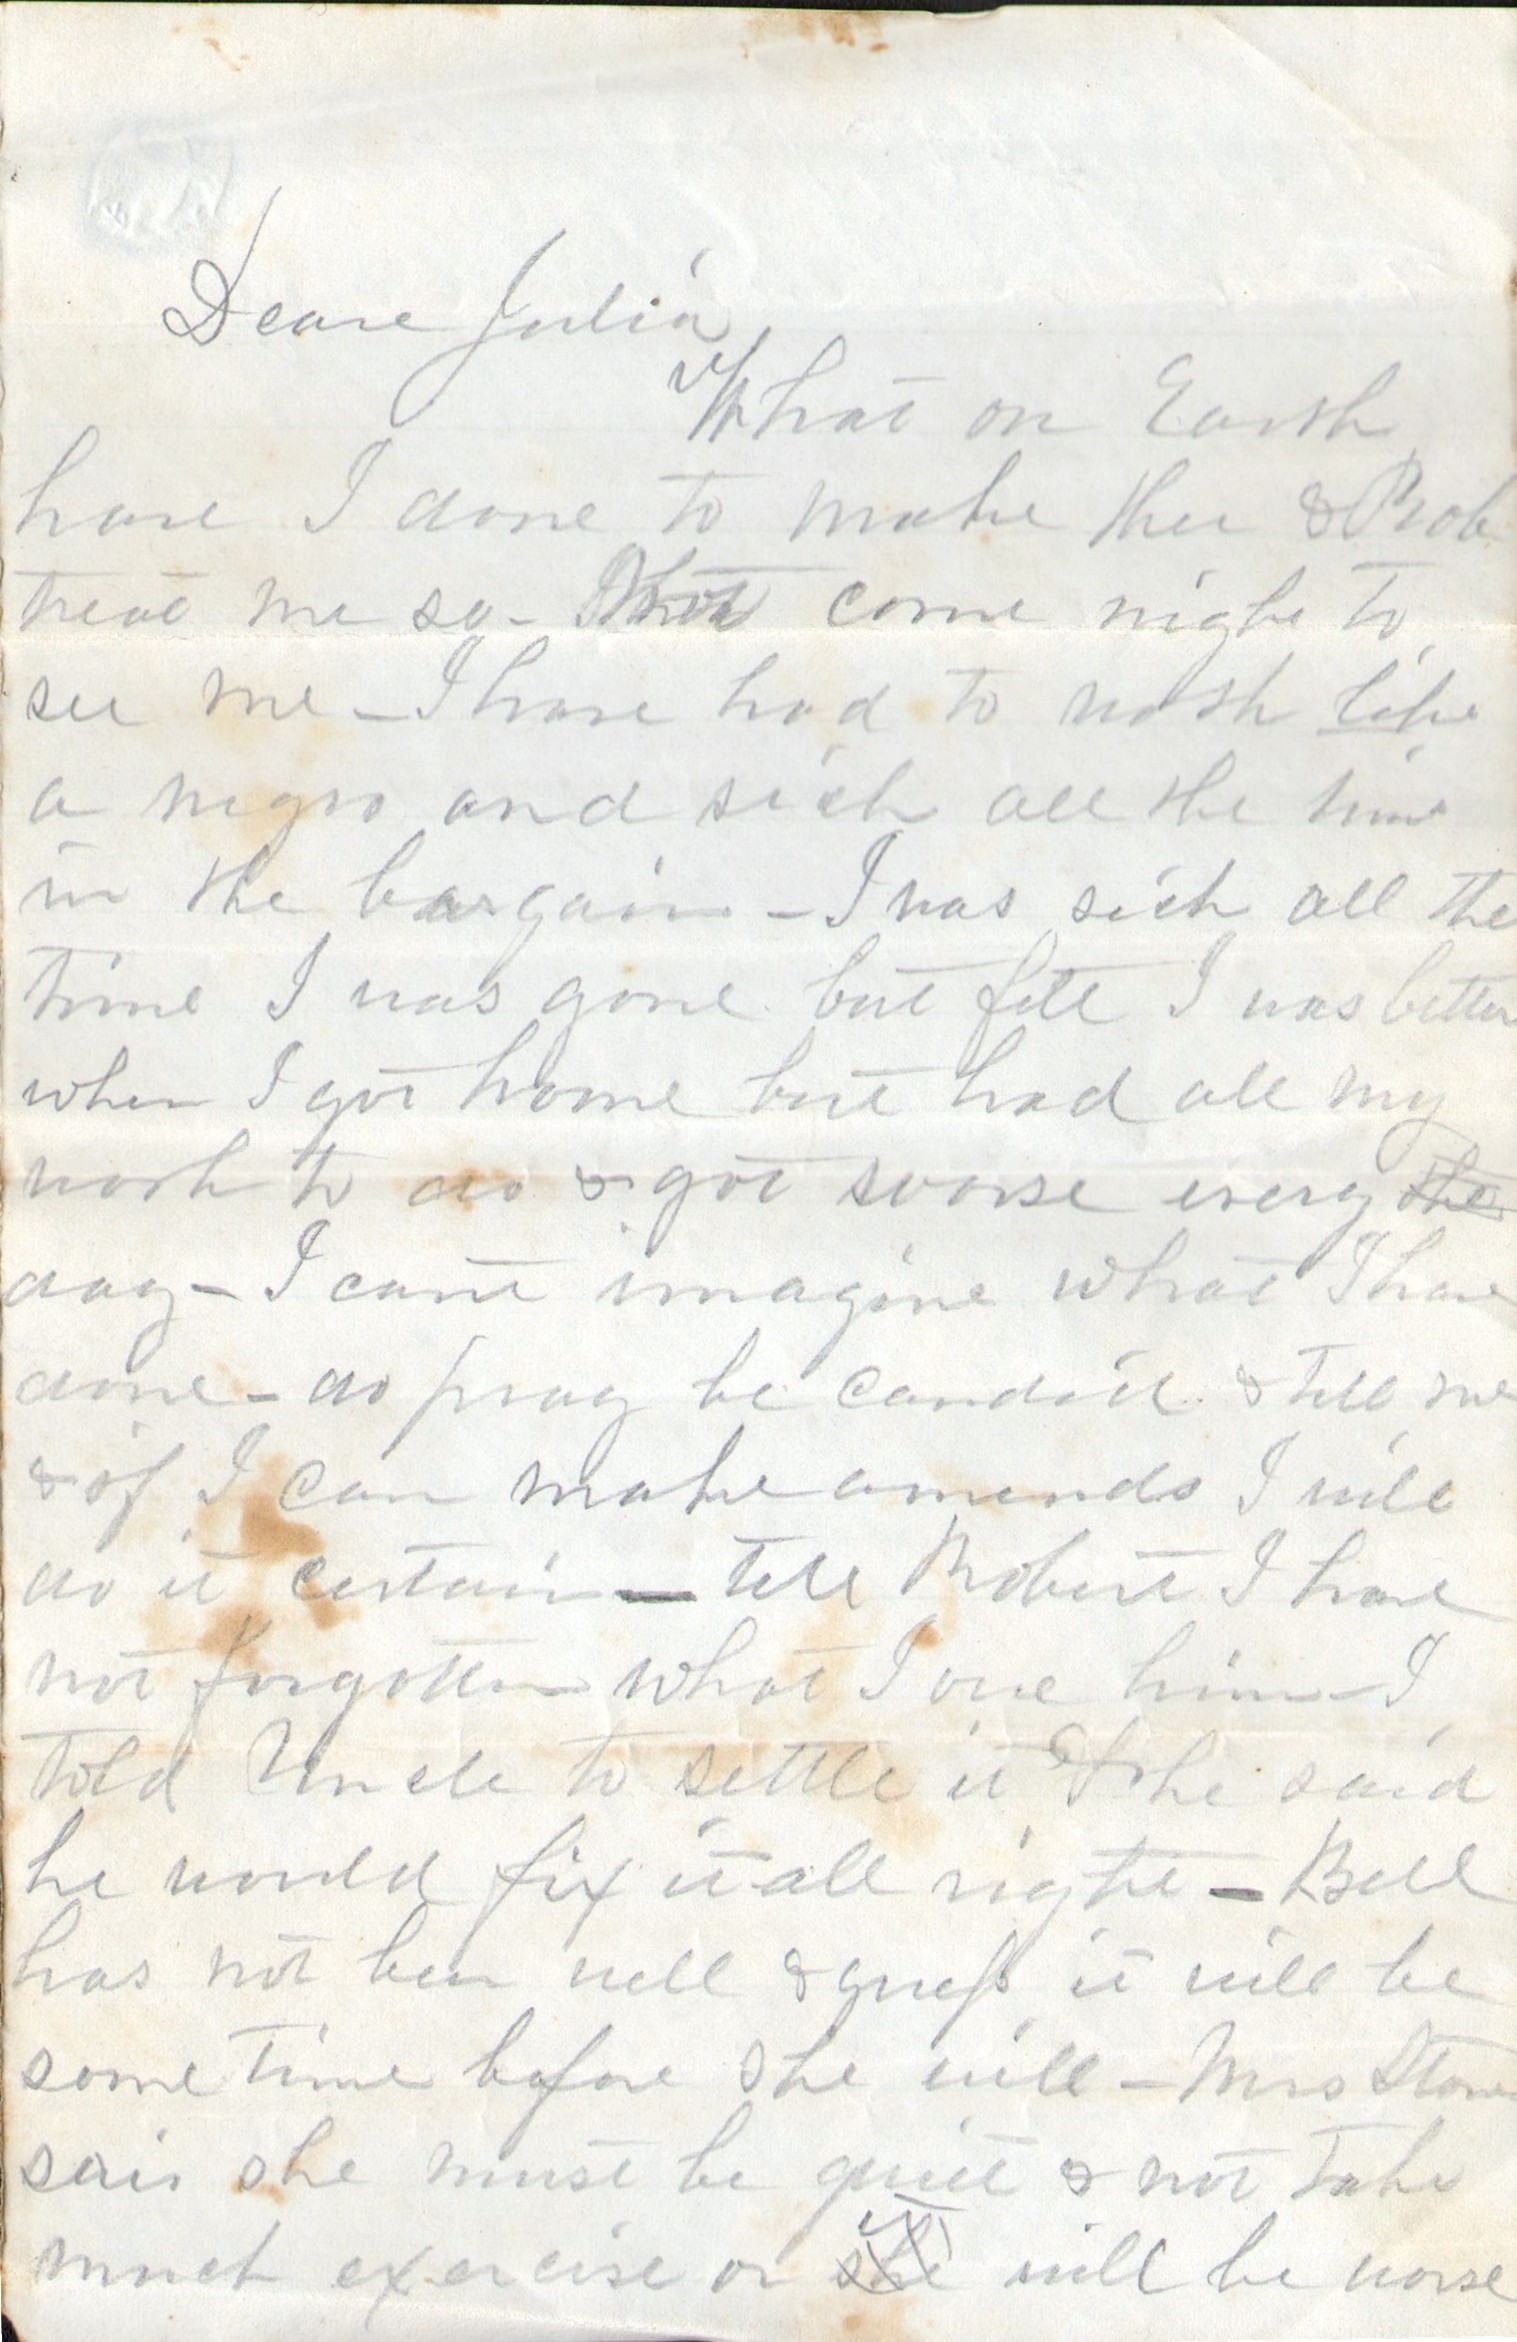 Deare Julia
What on Earth
have I done to make thee & Rob
treat me so - come nighe to
see me - I have had to work like
a negro and sick all the time
in the bargain - I was sick all the
time I was gone but felt I was better
when I got home but had all my
work to do & got worse every the
day - I cant imagine what I have
done - do pray be candid & tell me
& if I can make amends I will
do it certain - tell Robert I have
not forgotten what I owe him - I
told Uncle to settle it & he said
he would fix it all right - Bell
has not ben well & guess it will be
some time before she will - Mrs Stone
sais she must be quiet & not take
much exercise or she it will be worse